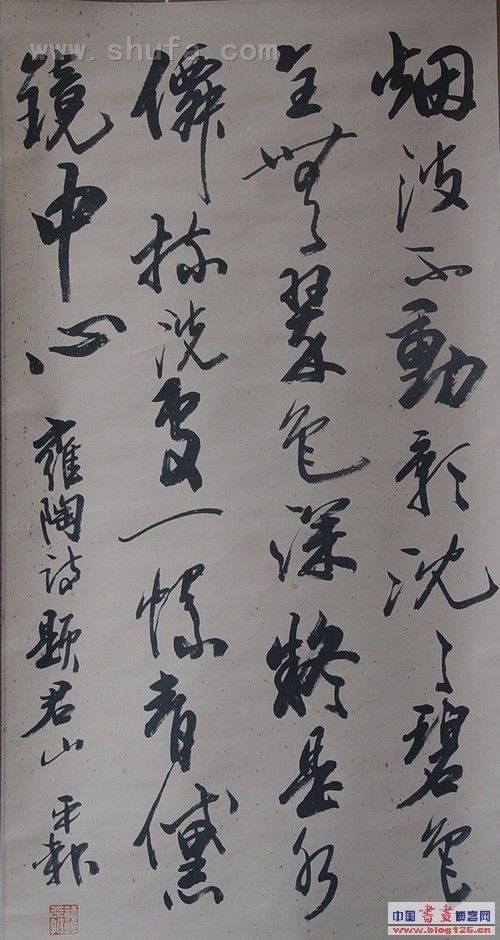 www.shufa.com
烟波不動影沈〻碧色
全無翠色深疑是水
僊梳洗處一螺青黛
鏡中心 雍陶詩題君山
中国書畫博客网
www.blog125.cn